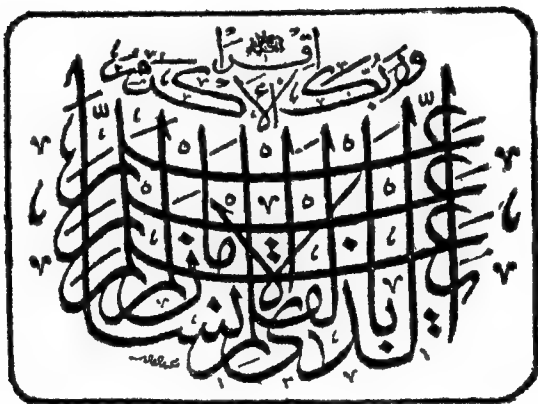 اقرأ وربك الأكرم
الذي علم بالقلم
علم الإنسان ما لم يعلم